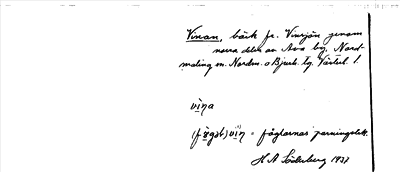 Vinan, bäck fr. Vinsjön genom
norra delen av Ava by, Nord-
maling sn. Nordm. o Bjurh. tg. Västerb. l.
vìna
(fə̀gəl)vìn = fåglarnas parningslek.
H A Söderberg 1937